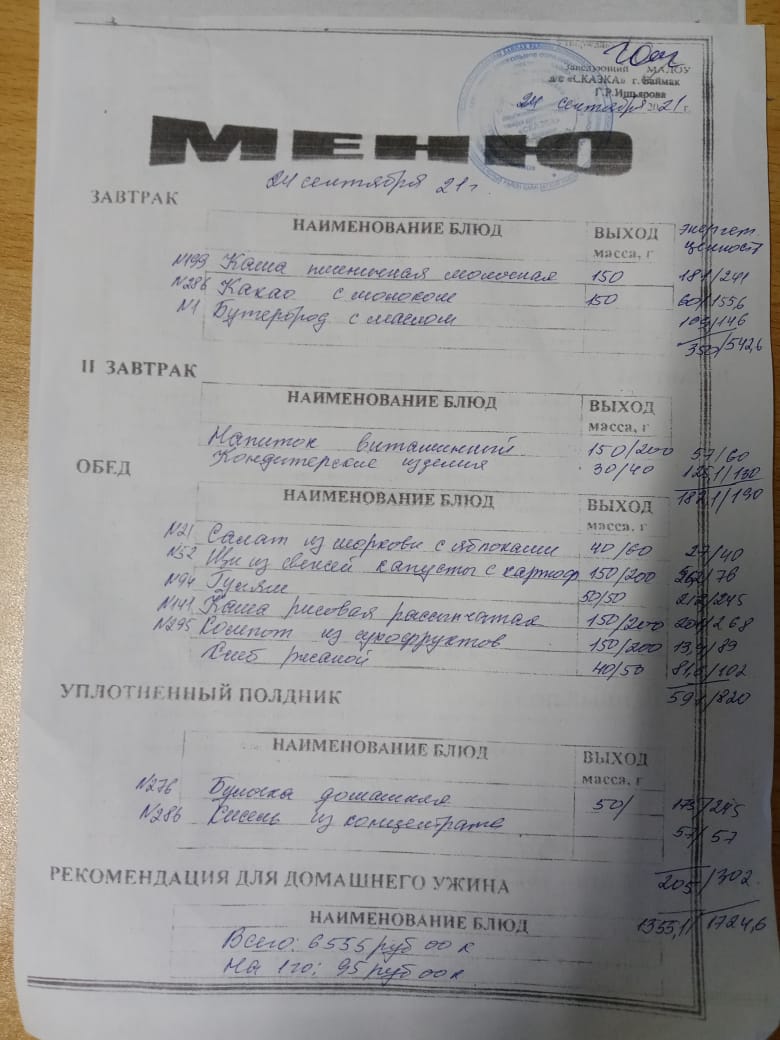 Заведующий МАДОУ
д/с «СКАЗКА» г. Баймак
Г.Р.Ишьярова
24 сентября 2021 г.
МЕНЮ
24 сентября 21 г
ЗАВТРАК
НАИМЕНОВАНИЕ БЛЮД ВЫХОД масса, г Энергет. ценност
N199 Каша пшеничная молочная 150 181/241
N286 Какао с молоком 150 60/155,6
N1 Бутерброд с маслом 109/146
350/542,6
II ЗАВТРАК
НАИМЕНОВАНИЕ БЛЮД ВЫХОД масса, г
Напиток витаминный 150/200 57/60
Кондитерские изделия 30/40 125,1/130
182,1/190
ОБЕД
НАИМЕНОВАНИЕ БЛЮД ВЫХОД масса, г
N21 Салат из моркови с яблоками 40/60 27/40
N52 Щи из свежей капусты с картоф 150/200 /76
N94 Гуляш 50/50 /245
N141 Каша рисовая рассыпчатая 150/200 201/268
N295 Компот из сухофруктов 150/200 /89
Хлеб ржаной 40/50 81,6/102
591/820
УПЛОТНЕННЫЙ ПОЛДНИК
НАИМЕНОВАНИЕ БЛЮД ВЫХОД масса, г
N276 Булочка домашняя 50/ 175/245
N286 Кисель из концентрата 57/57
205/302
РЕКОМЕНДАЦИЯ ДЛЯ ДОМАШНЕГО УЖИНА
НАИМЕНОВАНИЕ БЛЮД 1355,1/1724,6
Всего: 6555 руб 00 к
На 1го: 95 руб 00 к